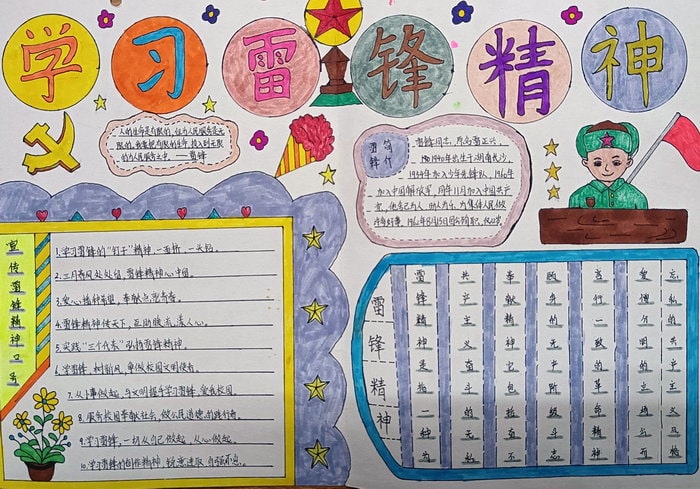 学习雷锋精神
人的生命是有限的，但为人民服务是无
限的，我要把有限的生命，投入到无限
的为人民服务之中。——雷锋
雷锋
简介
雷锋同志，原名雷正兴，
1940年出生于湖南长沙，
1954年加入少年先锋队，1960年
加入中国解放军，同年11月加入中国共产
党，他舍己为人，助人为乐，为集体人民做
许多好事。1962年8月15日因公殉职，仅22岁
宣传雷锋精神口号
1.学习雷锋的"钉子"精神，一面挤，一头钻。
2.三月春风处处留，雷锋精神心中留。
3.爱心播种希望，奉献点亮青春。
4.雷锋精神传天下，互助暖流涌人心。
5.实践"三个代表"弘扬雷锋精神。
6.学雷锋，树新风，争做校园文明使者。
7.从小事做起，与文明握手学习雷锋，爱我校园。
8.服务校园奉献社会，做公民道德的践行者。
9.学习雷锋，一切从自己做起，从心做起。
10.学习雷锋的创业精神，锐意进取，自强不息。
雷锋精神
雷锋精神是指一种为
共产主义奋斗的无私
奉献精神它包括奋不
顾身的无产阶级斗志
言行一致的革命精神
爱憎分明的立场而
忘私的共产主义风格